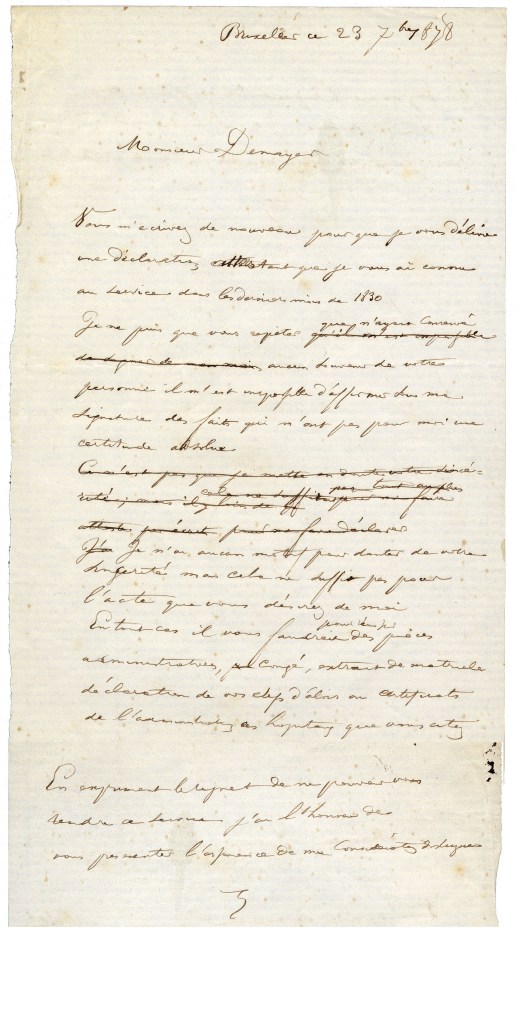 Bruxelles ce 23 7bre 1878
Monsieur Demayer
Vous m'ecrivez de nouveau pour que je vous délivre
une déclaration attestant que je vous ai connu
au service dans les derniers mois de 1830
Je ne puis que vous repeter que n'ayant conservé
qu'il m'est impossible
de signer de mon nom aucun souvenir de votre
personne il m'est impossible d'affirmer sous ma
signature des faits qui n'ont pas pour moi une
certitude absolue
Ce n'est pas que je mette en doute votre sincé-
rité, mais cela ne suffit pas
pour me faire déclarer
Je n'ai aucun motif pour douter de votre
sincérité mais cela ne suffit pas pour
l'acte que vous désirez de moi
En tout cas il vous faudrait des pièces
administratives, congé, extrait de matricule
déclaration de vos chefs d'alors ou certificats
de l'administration des hopitaux que vous citez
En exprimant le regret de ne pouvoir vous
rendre ce service j'ai l'honneur de
vous presenter l'assurance de ma considération distinguée